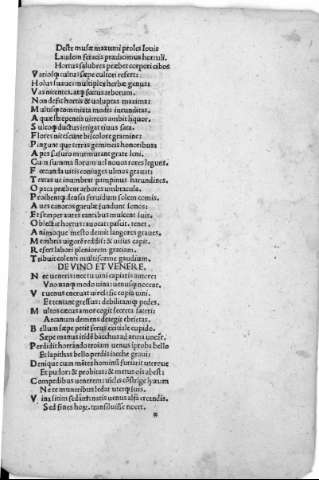 Deste musæ maxumi proles Iouis
Laudem feracis prædicemus hortuli.
Hortus salubres præbet corpori cibos
Variosq; cultus sæpe cultori refert:
Holus suaue: multiplex herbæ genus:
Vuas nitentes, atq; fœtus arborum.
Non desit hortis & uoluptas maxima:
Multisq; commixta modis iucunditas.
Aquæ strepentis uitreus ambit liquor,
Sulcoq; ductus irrigat riuus sata.
Flores nitescunt discolore gramine:
Pingunt que terras gemmeis honoribus
Apes susurro murmurant grate leni.
Cum summa florum uel nouos rores legunt.
Fœcunda uitis coniuges ulmos grauat:
Textas ue inumbrat pampinus harundines.
Opaca præbent arbores umbracula.
Prohibentq; densis feruidum solem comis.
Aues canoros garrulæ fundunt sonos:
Et semper aures cantibus mulcent suis.
Oblectat hortus: auocat: pascit, tenet.
Animoque mesto demit langores graues.
Membris uigorē reddit: & uisus capit.
Refert labori pleniorem gratiam.
Tribuit colenti multiforme gaudium.
DE VINO ET VENERE.
Nec ueneris: nec tu uini capiaris amore:
Vno nanq; modo uina: uenusq; nocent.
Vt uenus eneruat uires: sic copia uini.
Et tentant gressus: debilitantq; pedes.
Multos cæcus amor cogit secreta fateri:
Arcanum demens detegit ebrietas.
Bellum sæpe petit ferus exitiale cupido.
Sæpe manus itidē bacchus ad arma uocat.
Perdidit horrēdo troiam uenus iproba bello
Et lapithas bello perdis iacche graui:
Denique cum mētes hominū furiarit uterque
Et pudor: & probitas: & metus ois abest:
Compedibus uenerem: uīclis cōstrīge lyæum
Ne te muneribus lædat uterq; suis.
Vina sitim sedēt: natis uenus alma creandis.
Sed fines hoȝ, transiluisse nocet.